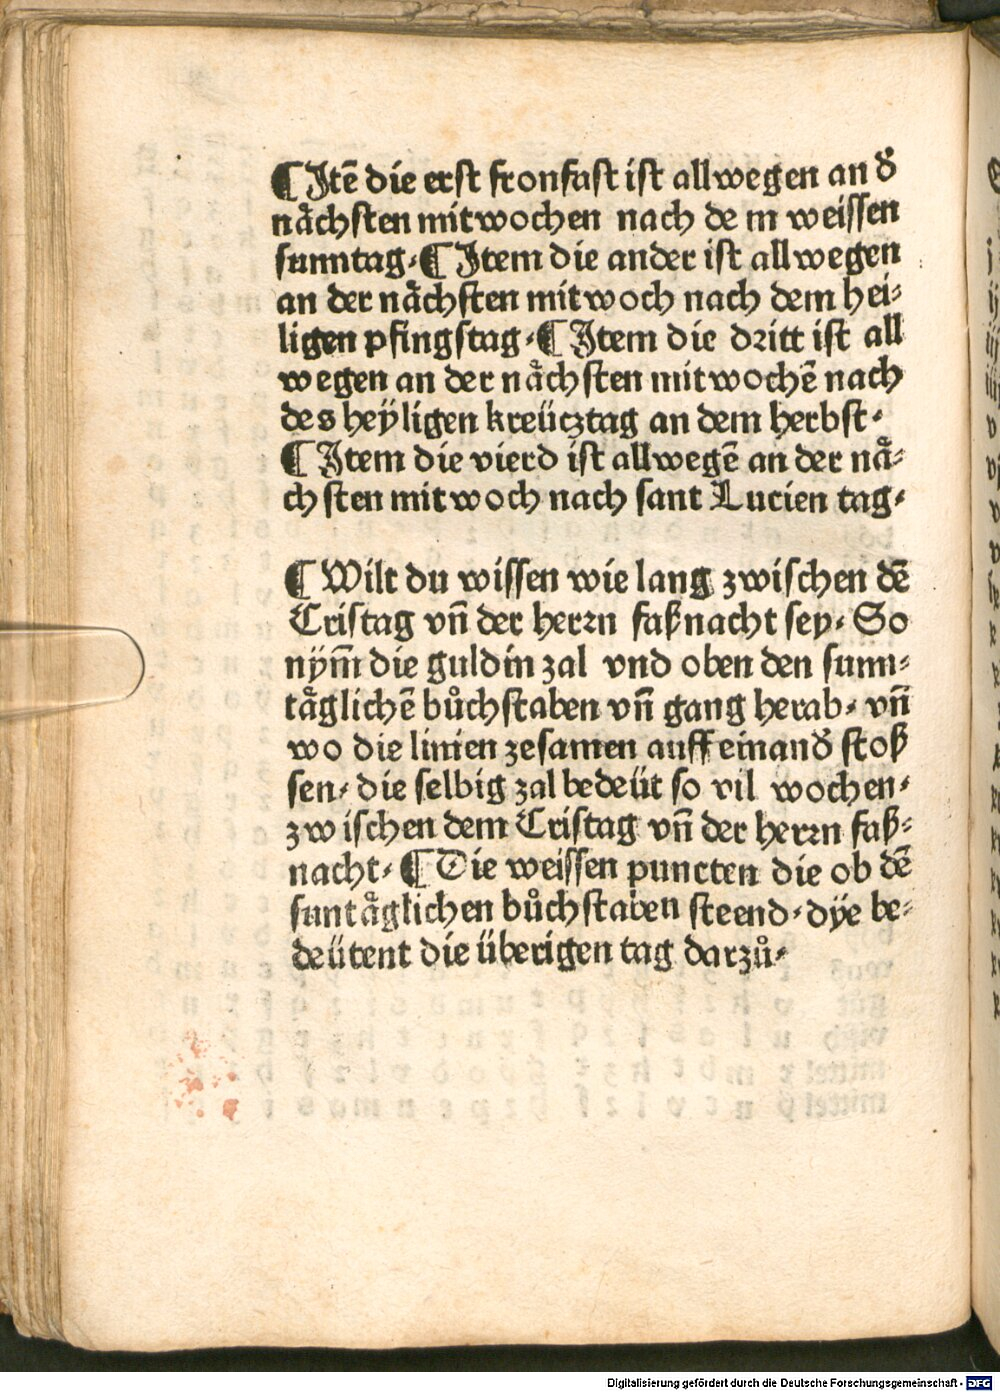 ¶ Itē die erst fronfast ist allwegen an d̕
nåchsten mitwochen nach de m weissen
sunntag. ¶ Item die ander ist allwegen
an der nåchsten mitwoch nach dem hei-
ligen pfingstag. ¶ Item die dritt ist all
wegen an der nåchsten mitwochē nach
des heÿligen kreücztag an dem herbst.
¶ Item die vierd ist allwegē an der nå-
chsten mitwoch nach sant Lucien tag.
¶ Wilt du wissen wie lang zwischen dē
Cristag vn̄ der herrn faßnacht sey. So
nÿm̄ die guldin zal vnd oben den sunn-
tåglichē bůchstaben vn̄ gang herab. vn̄
wo die linien zesamen auff einand̕ stoß
sen. die selbig zal bedeüt so vil wochen.
zwischen dem Cristag vn̄ der herrn faß-
nacht. ¶ Die weissen puncten die ob dē
suntåglichen bůchstaben steend. dÿe be-
deütent die überigen tag darzů.
Digitalisierung gefördert durch die Deutsche Forschungsgemeinschaft - DFG